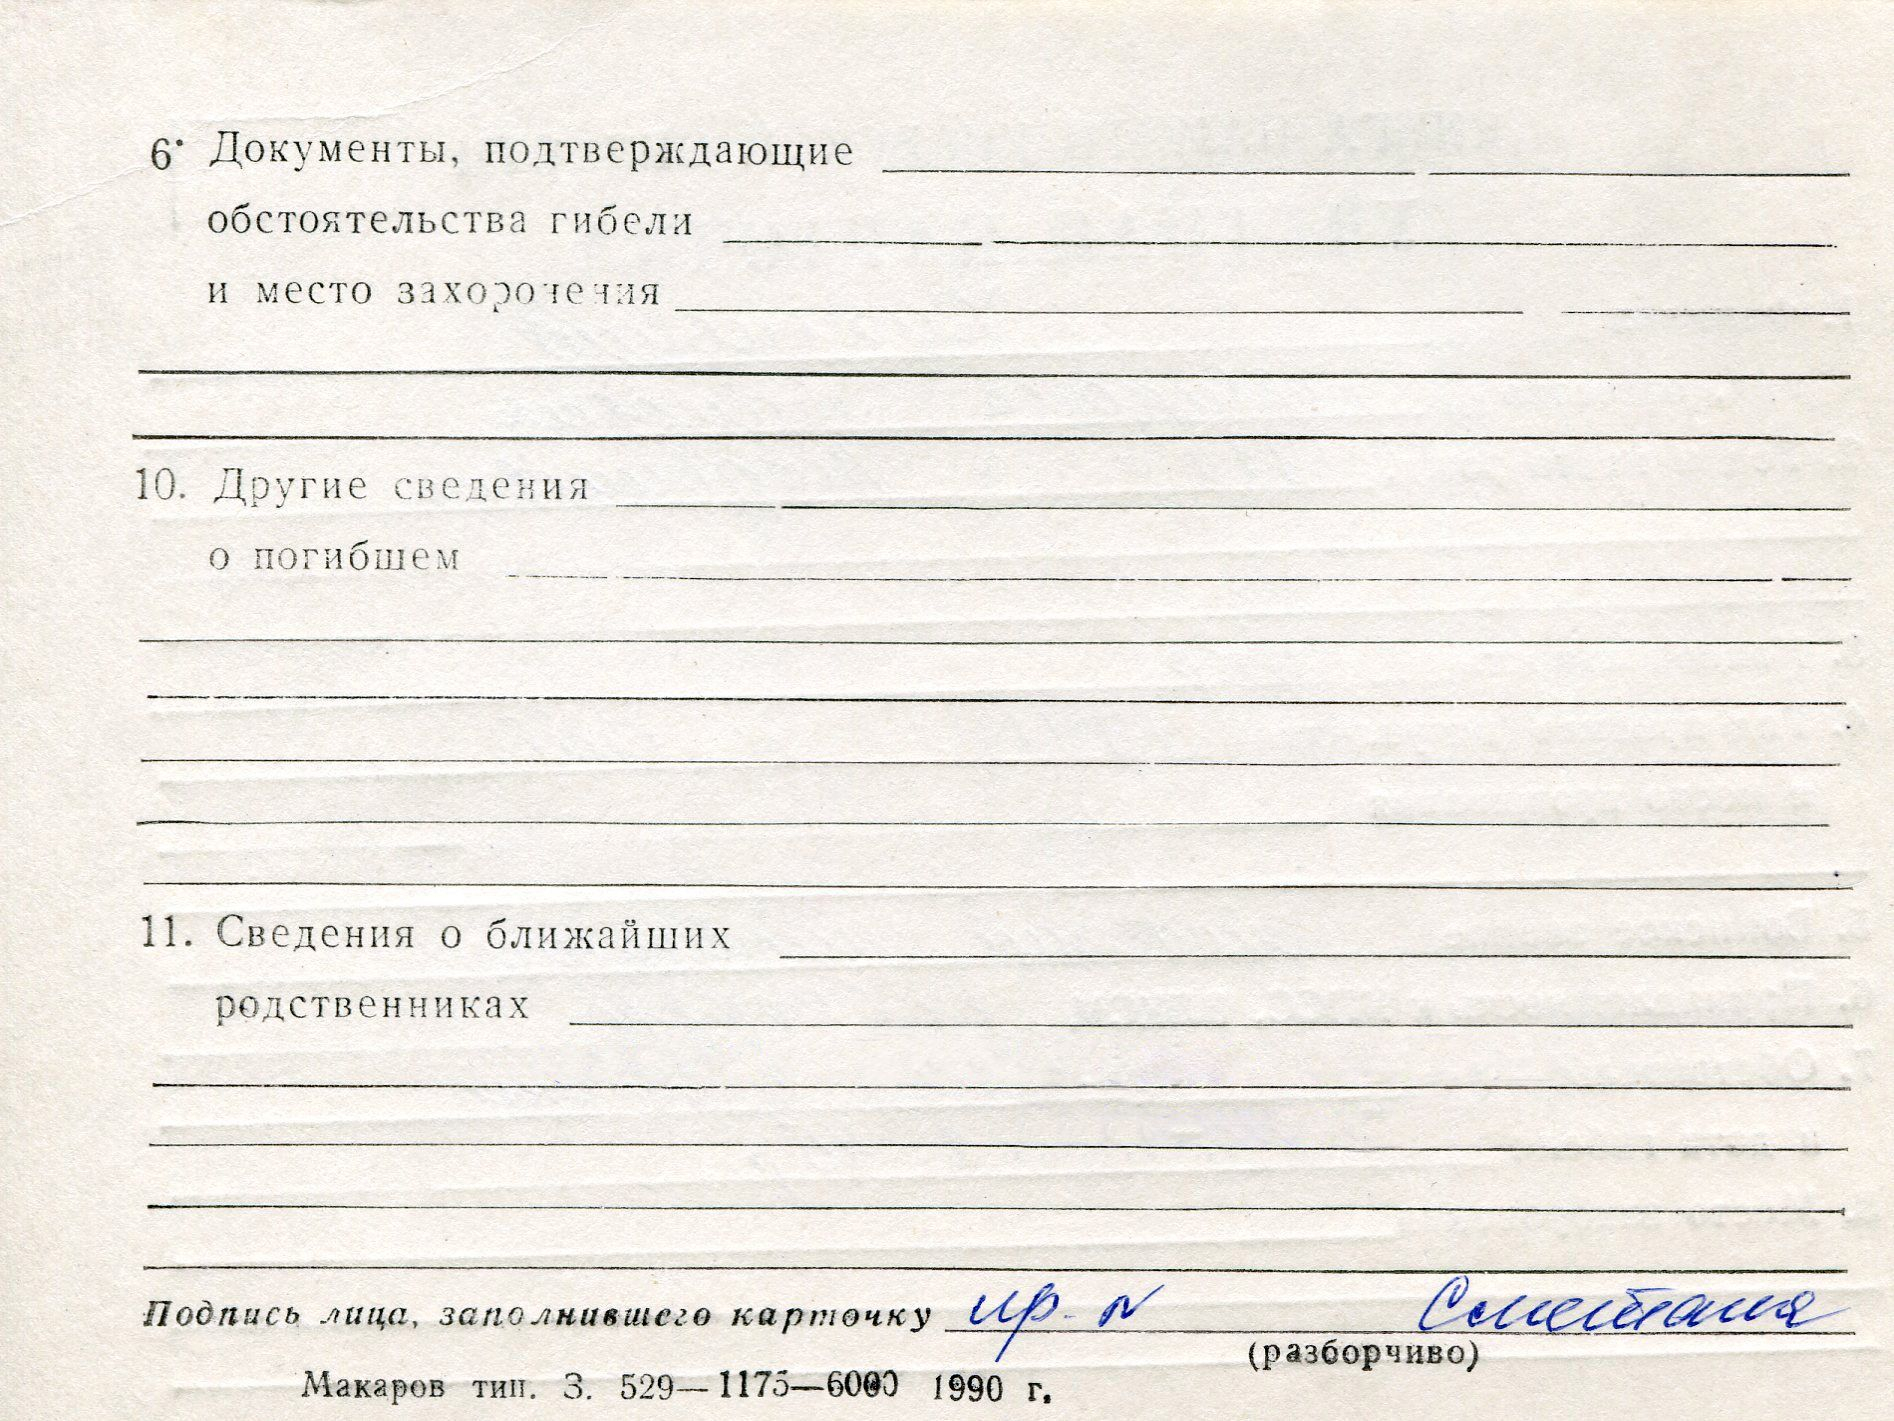 6. Документы, подтверждающие
обстоятельства гибели
и место захоронения
10. Другие сведения
о погибшем
11. Сведения о ближайших
родственниках
Подпись лица, заполнившего карточку пр-к Сметаня
(разборчиво)
Макаров тип. З. 529—1175—6000 1990 г.